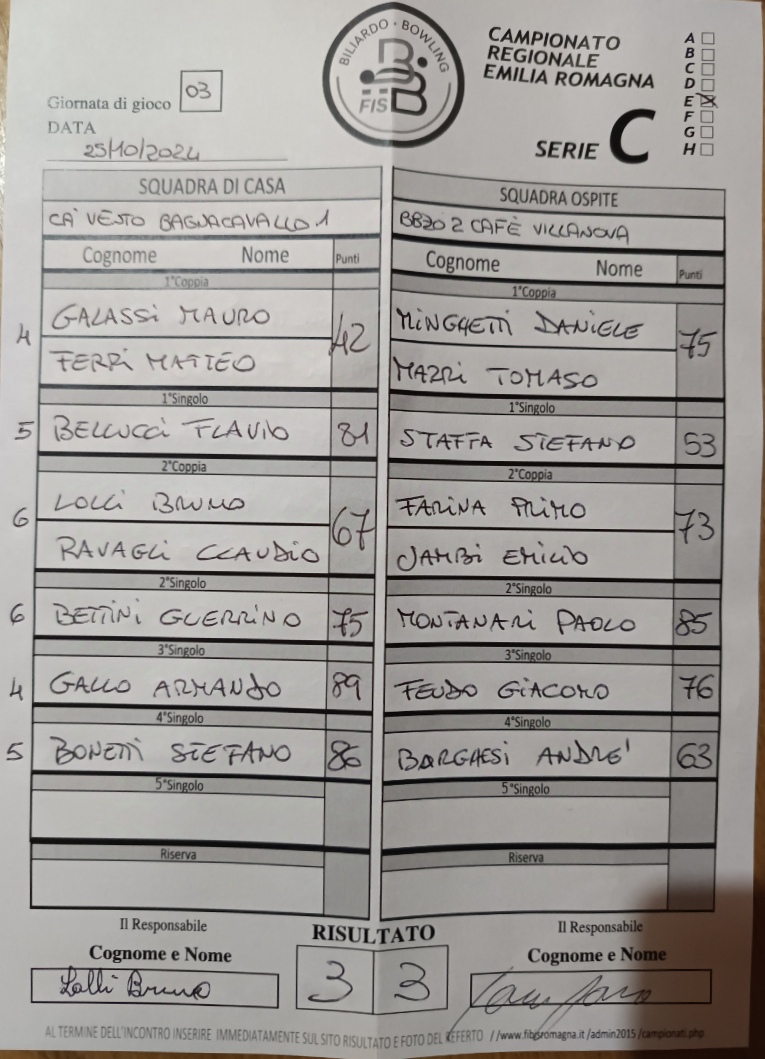 BILIARDO · BOWLING
FISBB
CAMPIONATO
REGIONALE
EMILIA ROMAGNA
SERIE C
A
B
C
D
E X
F
G
H
Giornata di gioco 03
DATA
25/10/2024
SQUADRA DI CASA
CA' VESTO BAGNACAVALLO 1
Cognome Nome Punti
1°Coppia
4 GALASSI MAURO 42
FERRI MATTEO
1°Singolo
5 BELLUCCI FLAVIO 81
2°Coppia
6 LOLLI BRUNO 67
RAVAGLI CLAUDIO
2°Singolo
6 BETTINI GUERRINO 75
3°Singolo
4 GALLO ARMANDO 89
4°Singolo
5 BONETTI STEFANO 86
5°Singolo
Riserva
SQUADRA OSPITE
BB20 2 CAFÈ VILLANOVA
Cognome Nome Punti
1°Coppia
MINGHETTI DANIELE 75
MAZRI TOMASO
1°Singolo
STAFFA STEFANO 53
2°Coppia
FARINA PRIMO 73
JAMBI EMILIO
2°Singolo
MONTANARI PAOLO 85
3°Singolo
FEUDO GIACOMO 76
4°Singolo
BORGHESI ANDRE' 63
5°Singolo
Riserva
Il Responsabile
Cognome e Nome
Lolli Bruno
RISULTATO
3 3
Il Responsabile
Cognome e Nome
AL TERMINE DELL'INCONTRO INSERIRE IMMEDIATAMENTE SUL SITO RISULTATO E FOTO DEL REFERTO //www.fibisromagna.it/admin2015/campionati.php